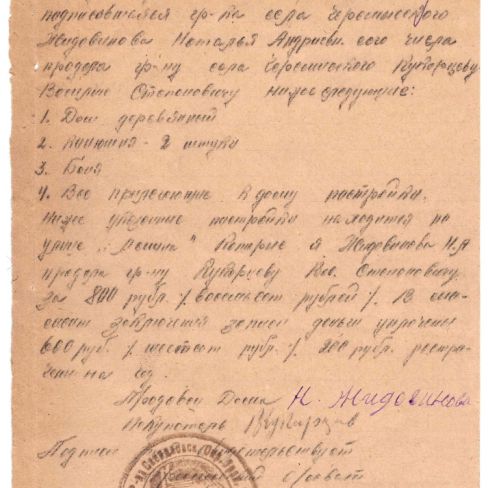 подписовшейся гр-ка села Черемисского
Жидовинова Наталья Андриевн. сого числа
продала гр-ну села Черемисского Кукарцеву
Василию Степоновичу нижеследующие:
1. Дом деревянный
2. - 2 штуки
3. Баня
4. Все прилегающие к дому постройки,
ниже указанные постройки находятся на
улице Которые я Жидовинова Н.А
продала гр-ну Кукарцеву Вас. Степоновичу
за 800 рубл. % восемьсот рублей %. В
заключения записи деньги уплочены
600 руб. % шестсот рубл. % 200 рубл.
на год.
Продовец Дома Н. Жидовинова
Покупатель Кукарцев
Подписи свидетельствует